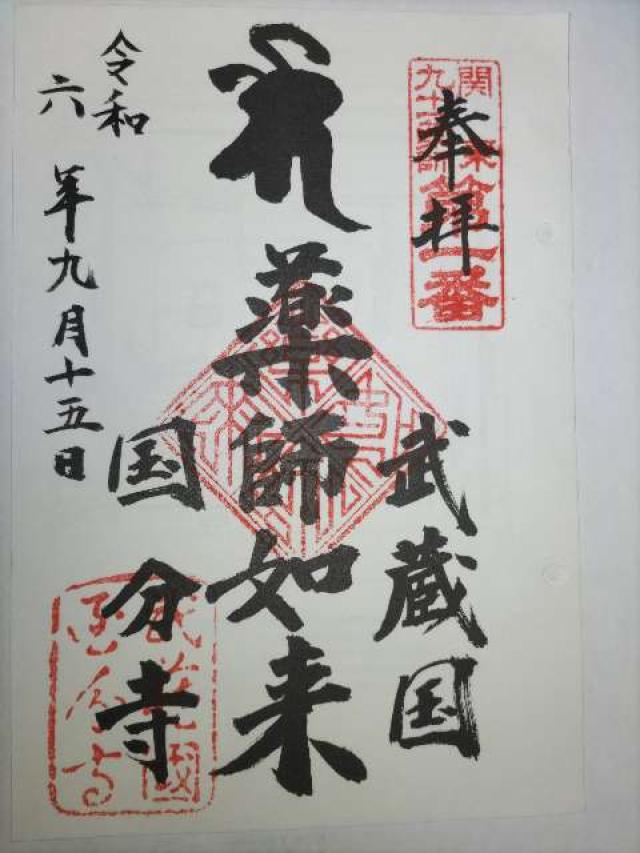 奉拝
関東
九十一薬師
第一番
武蔵国
薬師如来
国分寺
令和
六年九月十五日
武蔵國
国分寺